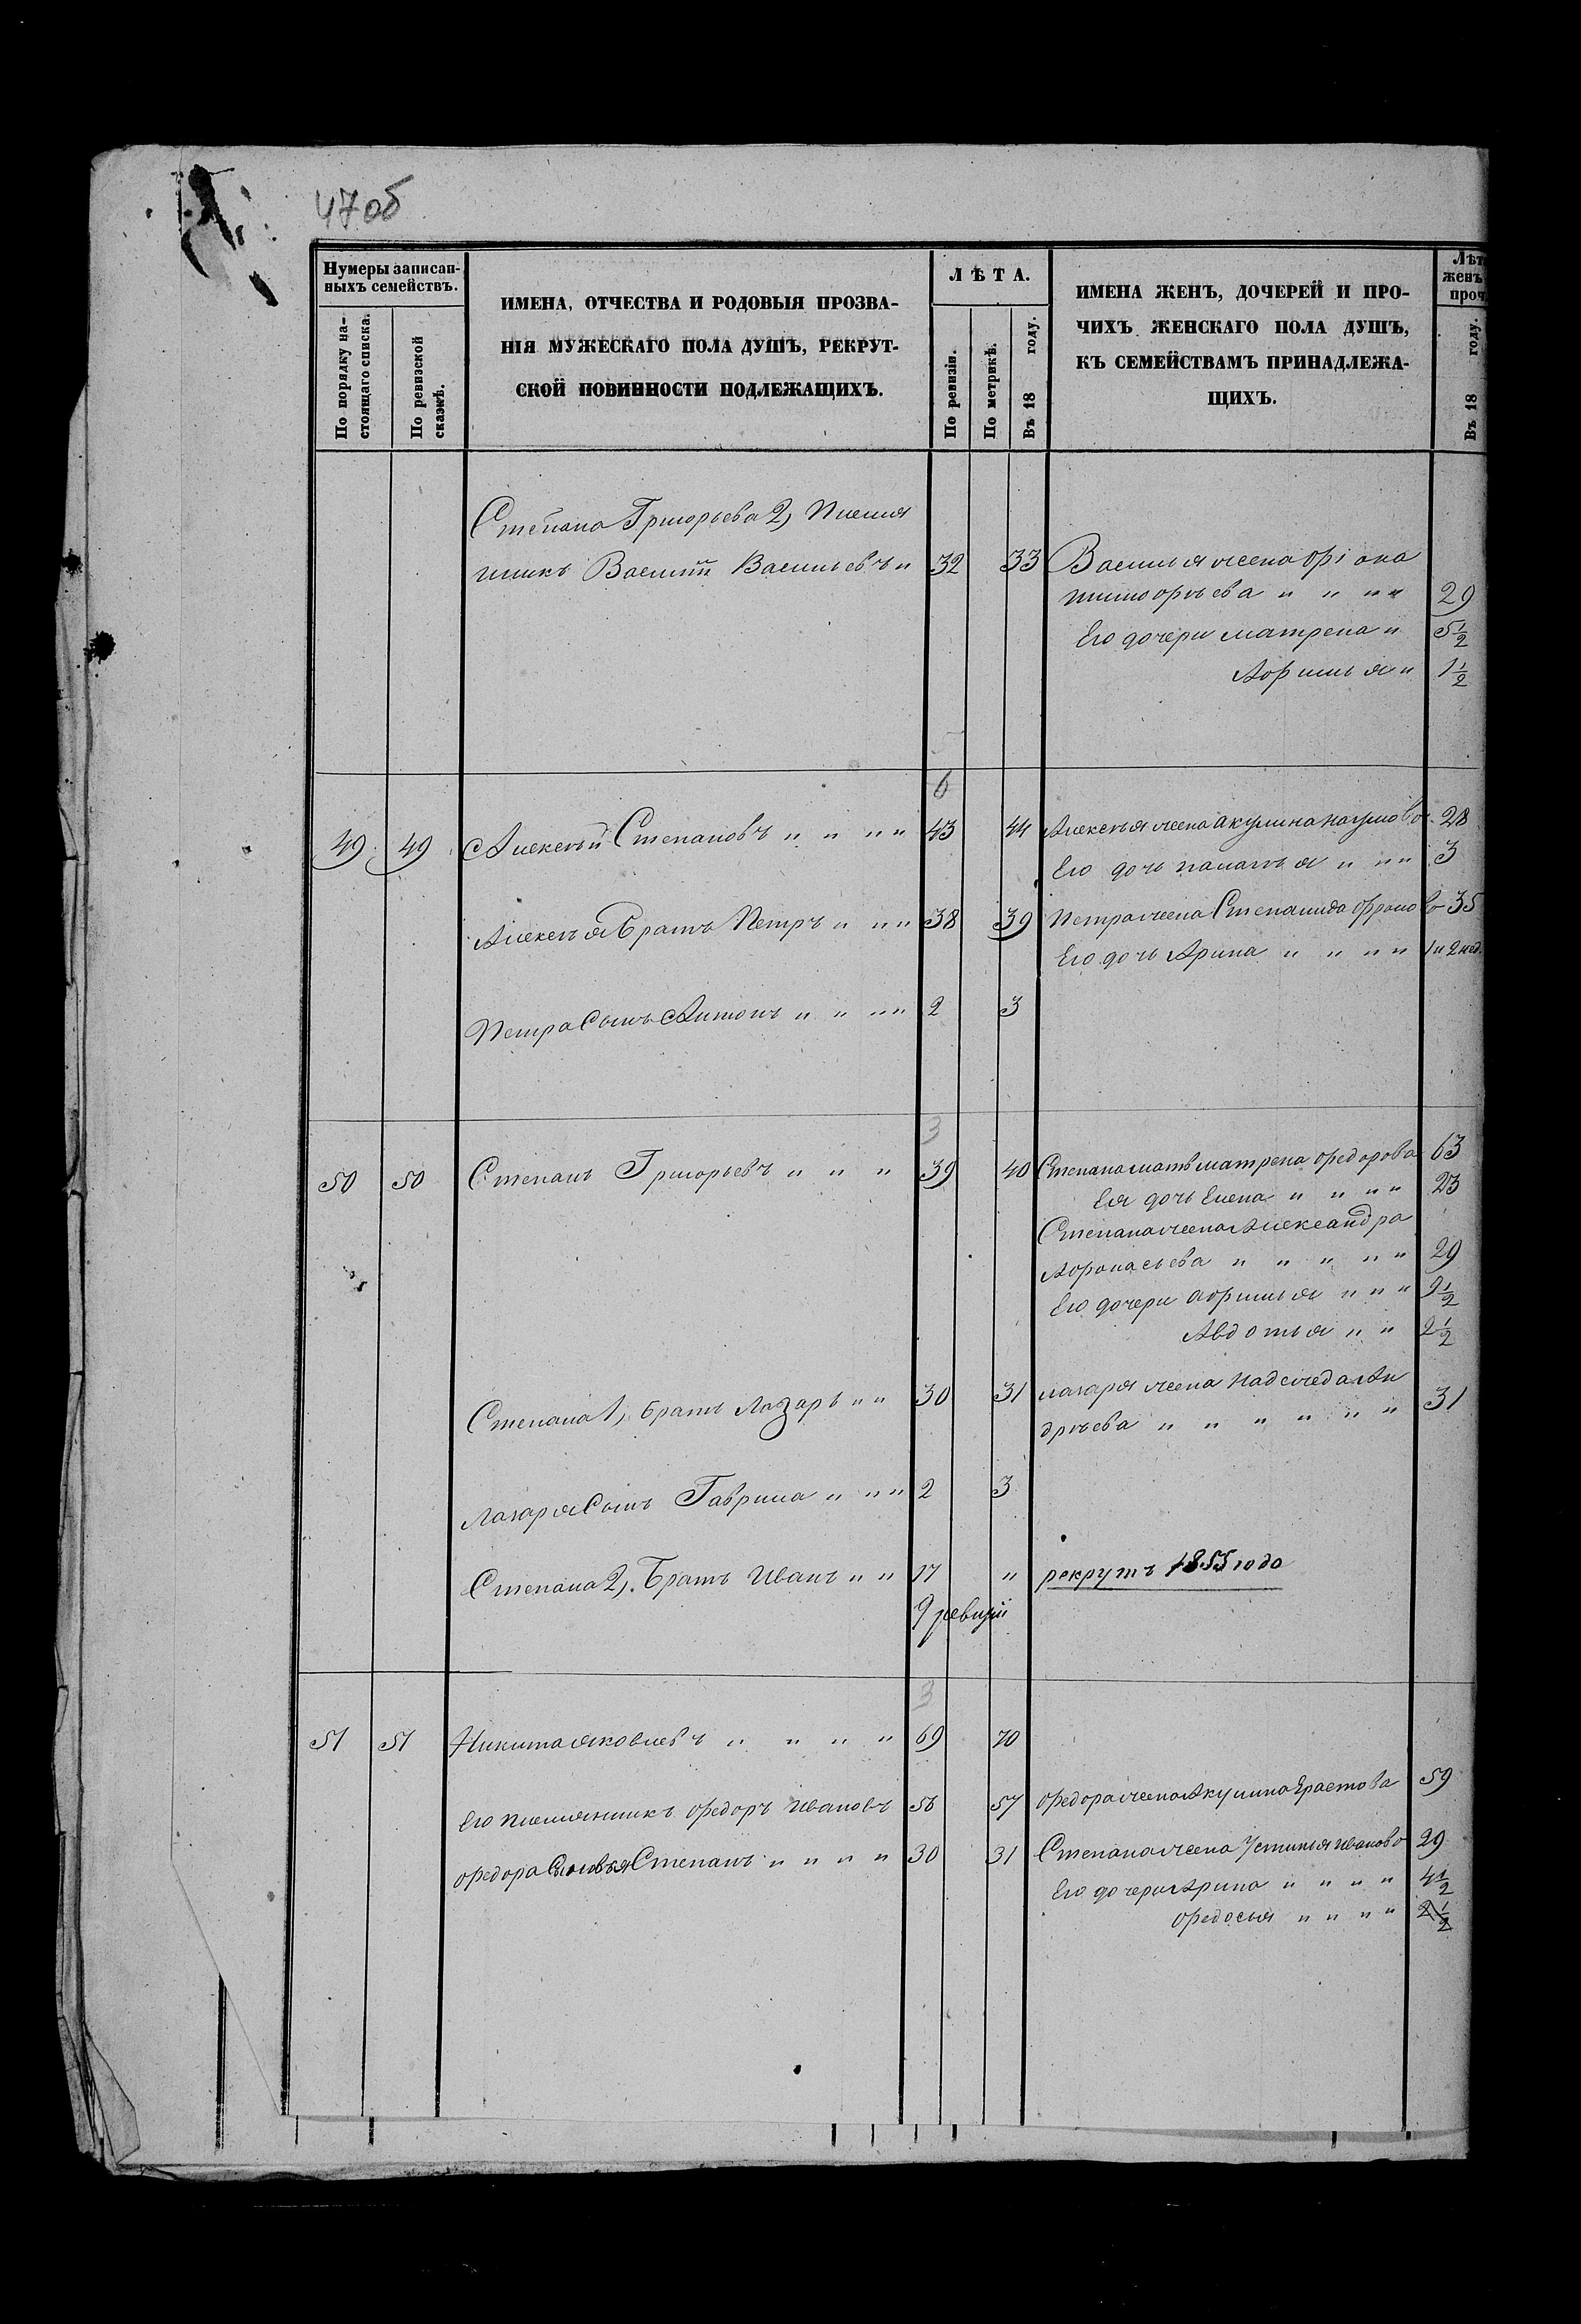 47об
Нумеры записан-
ныхъ семействъ.
По порядку на-
стоящаго списка.
По ревизской
сказкѣ.
ИМЕНА, ОТЧЕСТВА И РОДОВЫЯ ПРОЗВА-
НІЯ МУЖЕСКАГО ПОЛА ДУШЪ, РЕКРУТ-
СКОЙ ПОВИННОСТИ ПОДЛЕЖАЩИХЪ.
ЛѢТА.
По ревизіи.
По метрикѣ.
Въ 18 году.
ИМЕНА ЖЕНЪ, ДОЧЕРЕЙ И ПРО-
ЧИХЪ ЖЕНСКАГО ПОЛА ДУШЪ,
КЪ СЕМЕЙСТВАМЪ ПРИНАДЛЕЖА-
ЩИХЪ.
Лѣт
женъ
проч
Въ 18 году.
Степана Григорьева 2, племя
нникъ Василій Васильевъ " 32 33 Василья жена
тимофѣева " " " " 29
Его дочери матрена " 5 1/2
Афимья " 1 1/2
6
49 49 Алексѣй Степановъ " " " " 43 44 Алексѣя жена акулина наумова 28
Его дочь палагѣя " " " 3
Алексѣя братъ Петръ " " " 38 39 Петра жена Степанида фролова 35
Его дочь Арина " " " " 1 и 2 нед.
Петра Сынъ Антонъ " " " " 2 3
3
50 50 Степанъ Григорьевъ " " " 39 40 Степана мать матрена федорова 63
Ея дочь Елена " " " " 23
Степана жена Александра
Афонасьева " " " " " 29
Его дочери афимья " " " 9 1/2
Авдотья " " 2 1/2
Степана 1, братъ Лазарь " " 30 31 лазаря жена надежда Ан
дрѣева " " " " " " 31
Лазаря Сынъ Гаврила " " " 2 3
Степана 2, братъ Иванъ " " 17 " рекрутъ 1855 года
9 ревизіи
3
51 51 Никита яковлевъ " " " " 69 70
Его племянникъ федоръ Ивановъ 56 57 федора жена Акулина Ерастова 59
федора Сыновья Степанъ " " " " 30 31 Степана жена Устинья иванова 29
Его дочери Арина " " " " 4 1/2
федосья " " " " 2 1/2